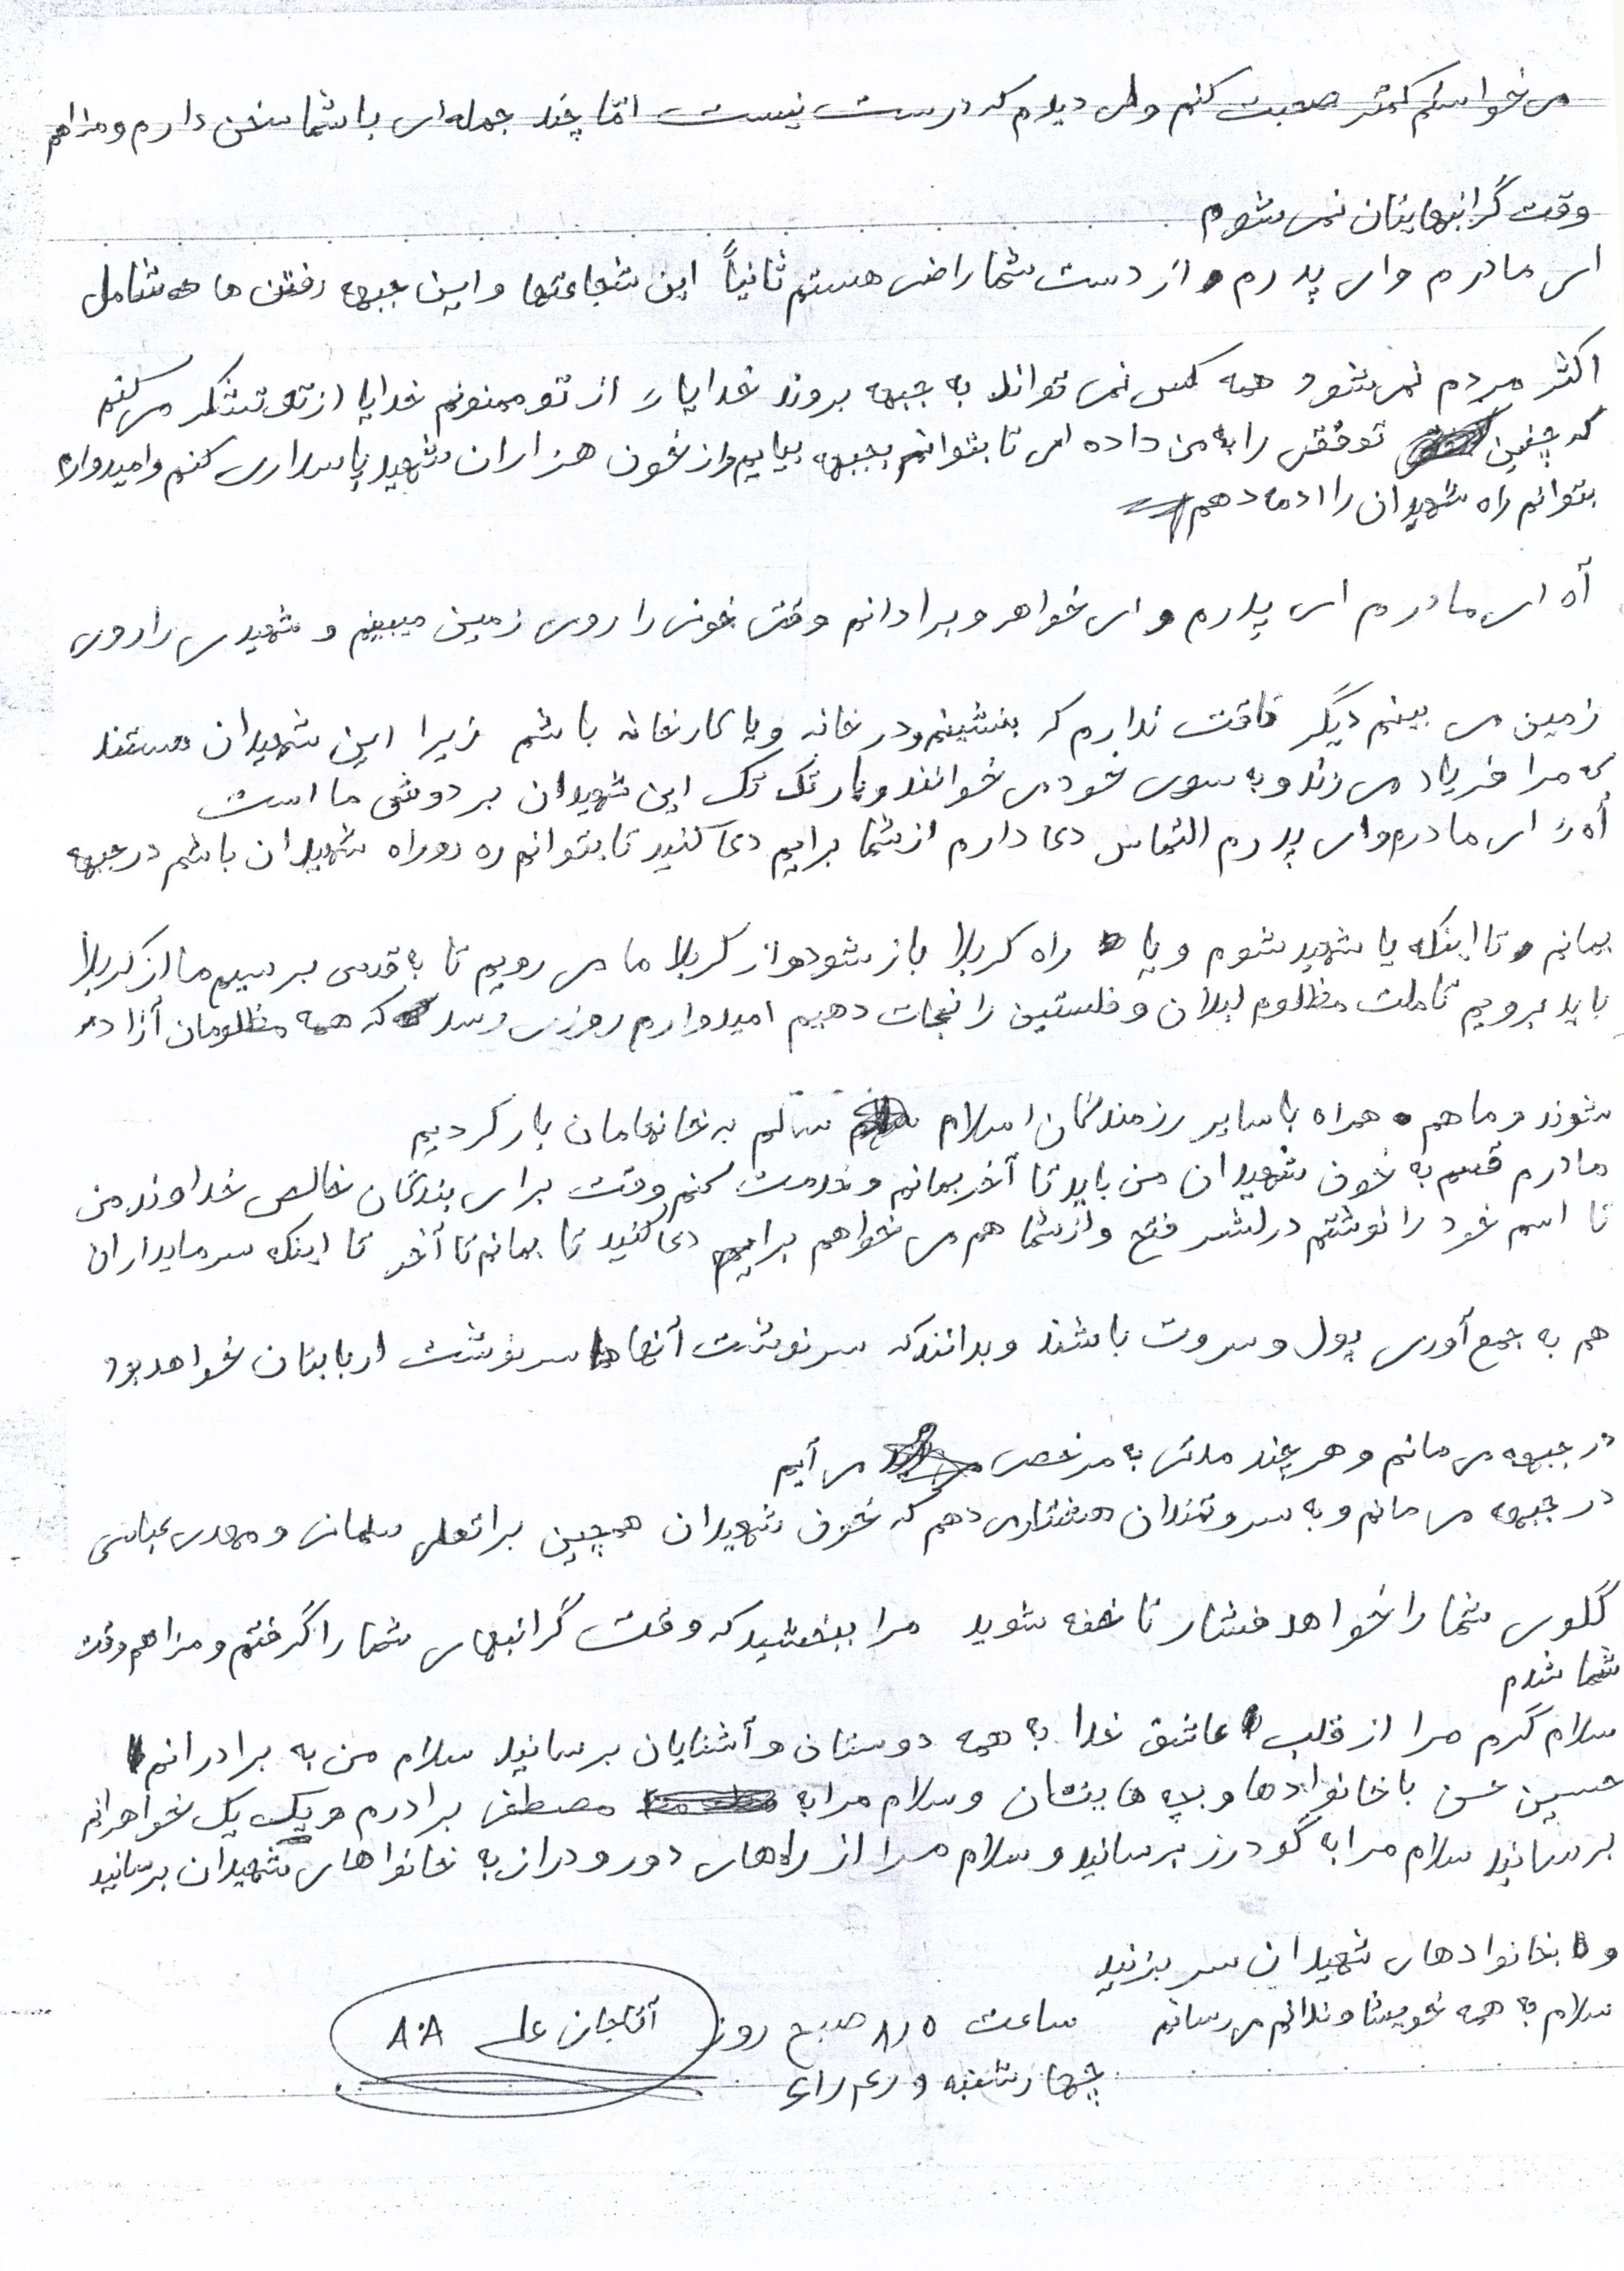 می خواستم کمتر صحبت کنم ولی دیدم که درست نیست امّا چند جمله ای با شما سخن دارم و مزاهم
وقت گرانبهایتان نمی شوم
ای مادرم و ای پدرم از دست شما راضی هستم ثانیاً این شجاعتها و این جبهه رفتن ها شامل
اکثر مردم نمی شود همه کس نمی تواند به جبهه بروند خدایا از تو ممنونم خدایا از تو تشکر می کنم
که چنین توفقی را به من داده ای تا بتوانم بجبهه بیایم و از خون هزاران شهید پاسداری کنم و امیدوارم
بتوانم راه شهیدان را ادما دهم
آه ای مادرم ای پدرم و ای خواهر و برادانم وقتی خونی را روی زمین میبینم و شهیدی را روی
زمین می بینم دیگر طاقت ندارم که بنشینم و در خانه و یا کارخانه باشم زیرا این شهیدان هستند
که مرا فریاد می زند و به سوی خود می خوانند و بار تک تک این شهیدان بر دوش ما است
آه ای مادرم و ای پدرم التماس دعا دارم از شما برایم دعا کنید تا بتوانم ره رو راه شهیدان باشم در جبهه
بمانم تا اینکه یا شهید شوم و یا راه کربلا باز شود و از کربلا ما می رویم تا به قدس برسیم ما از کربلا
باید برویم تا ملت مظلوم لبنان و فلستین را نجات دهیم امیدوارم روزی رسد که همه مظلومان آزاد
شوند و ما هم همراه با سایر رزمندگان اسلام سالم به خانهامان باز کردیم
مادرم قسم به خون شهیدان من باید تا آخر بمانم و خدمت کنم وقت برای بندگان خالص خداوند من
تا اسم خود را نوشتم در لشر فتح و از شما هم می خواهم برایم دعا کنید تا بمانم تا آخر تا اینکه سرمایداران
هم به جمع آوری پول و سروت باشند و بدانند که سرنوشت آنها سرنوشت اربابتان خواهد بود
در جبهه می مانم و هر چند مدتی به مرخصی می آیم
در جبهه می مانم و به سروتندان هشتار می دهم که خون شهیدان همچین براتعلی سلمانی و مهدی عباسی
گلوی شما را خواهد فشار تا خفه شوید مرا ببخشید که وقت گرانبهای شما را گرفتم و مزاهم وقت
شما شدم
سلام گرم مرا از قلب عاشق خدا به همه دوستان و آشنایان برسانید سلام من به برادرانم
حسین حسن با خانوادها و بچه هایشان و سلام مرا به مصطفی برادرم و یک یک خواهرانم
برسانید سلام مرا به گودرز برسانید و سلام مرا از راههای دور و دراز به خانواهای شهیدان برسانید
و بخانوادهای شهیدان سر بزنید
سلام به همه خویشاوندانم می رسانم ساعت ۸/۵ صبح روز آقاجان علی ۸۰۸
چهارشنبه